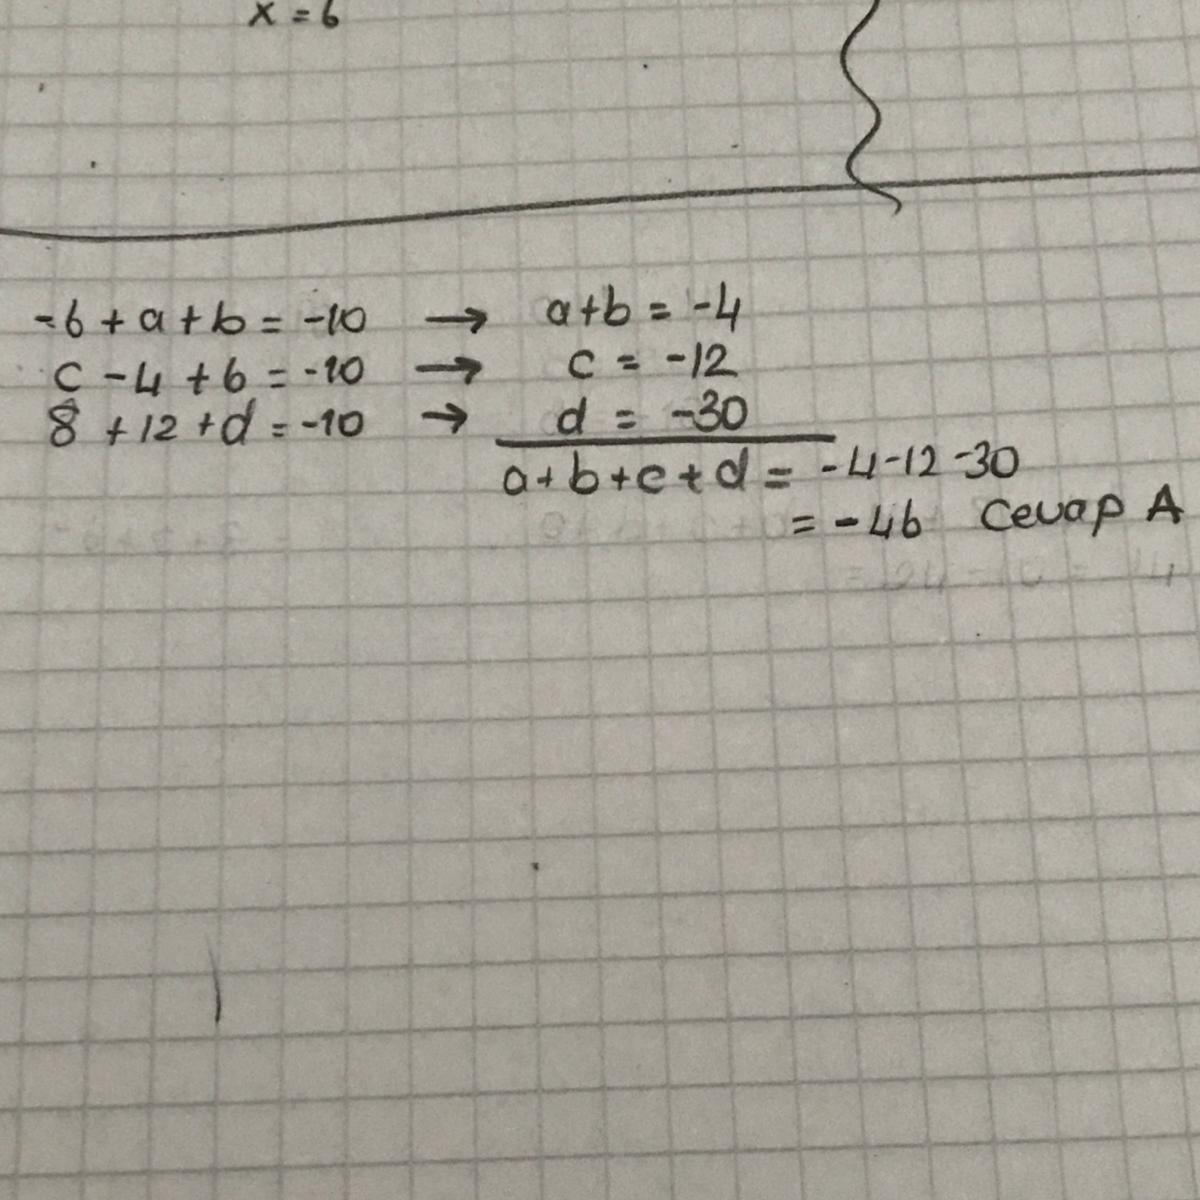 x = 6
-6 + a + b = -10 → a+b = -4
c - 4 + 6 = -10 → c = -12
8 + 12 + d = -10 → d = -30
a + b + c + d = -4 -12 -30
= -46 Cevap A